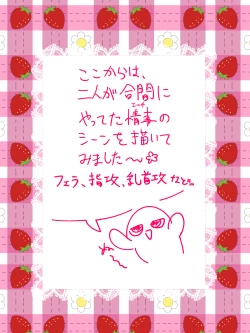 ここからは、
二人が合間に
やってた情事の
シーンを描いて
みました〜
フェラ、指攻、乳首攻 などw